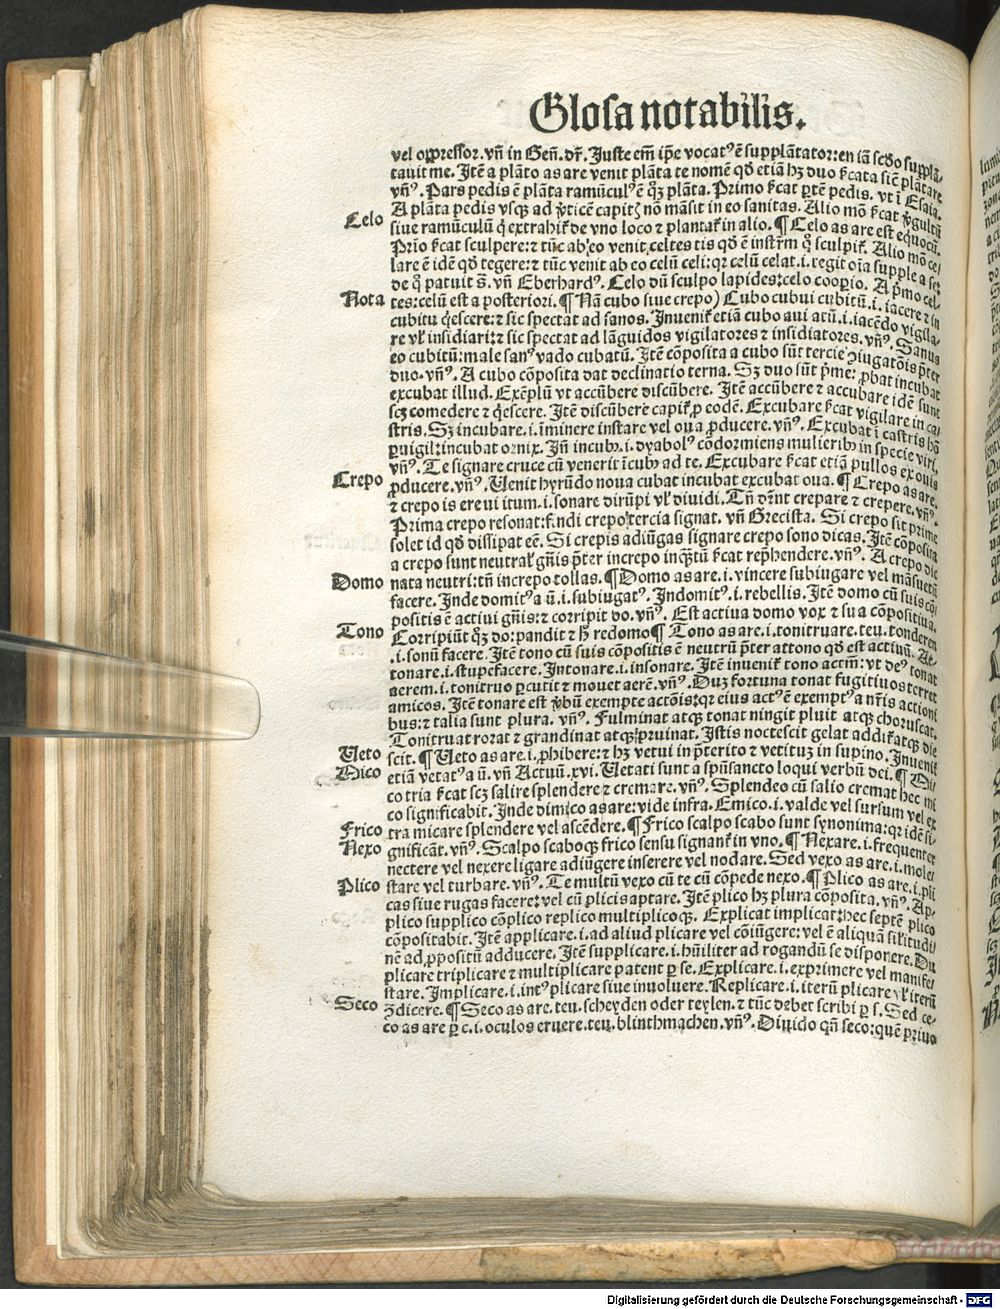 Glosa notabilis.
vel oppressor. vn̄ in Gen̄. dr̄. Juste em̄ ip̄e vocatꝰ ē supplātator: en iā scd̄o supplā-
tauit me. Jtē a plāto as are venit plāta te nomē qd̄ etiā hꝫ duo
vn̄ꝰ. Pars pedis ē plāta ramūculꝰ ē qꝫ plāta. Primo
A plāta pedis vsqꝫ ad capitꝭ nō māsit in eo sanitas. Alio mō
Celo siue ramūculū de vno loco ⁊ plantat̄ in alio. ¶ Celo as are est equocū.
Prīo sculpere: ⁊ tūc ab eo venit celtes tis qd̄ ē Alio mō ce-
lare ē idē qd̄ tegere: ⁊ tūc venit ab eo celū celi: qꝛ celū celat .i. tegit oīa
de patuit s̄. vn̄ Eberhardꝰ. Celo dū sculpo lapides: celo coopio. A p̄mo cel-
Nota tes: celū est a posteriori. ¶ Nā cubo siue crepo) Cubo cubui cubitū .i. iacere ⁊ in
cubitu q̄escere: ⁊ sic spectat ad sanos. Jnuenit̄ etiā cubo aui atū .i. iacēdo vigila-
re vl̓ insidiari: ⁊ sic spectat ad lāguidos vigilatores ⁊ insidiatores. vn̄ꝰ. Sanus
eo cubitū: male sanꝰ vado cubatū. Jtē cōposita a cubo sūt tercie
duo. vn̄ꝰ. A cubo cōposita dat declinatio terna. Sꝫ duo sūt p̄me: ꝓbat incubat
excubat illud. Exēplū vt accūbere discūbere. Jtē accūbere ⁊ accubare idē sunt
scꝫ comedere ⁊ q̄escere. Jtē discūbere capit̄ ꝓ eodē. Excubare vigilare in ca-
stris. Sꝫ incubare .i. īminere instare vel oua ꝓducere. vn̄ꝰ. Excubat ī castris
ꝑuigil: incubat ornix. Jn̄ incubꝰ .i. dyabolꝰ cōdormiens mulierib; in specie viri,
vn̄ꝰ. Te signare cruce cū venerit īcubꝰ ad te. Excubare etiā pullos ex ouis
Crepo ꝓducere. vn̄ꝰ. Uenit hyrūdo noua cubat incubat excubat oua. ¶ Crepo as are,
⁊ crepo is ere ui itum .i. sonare dirūpi vl̓ diuidi. Tn̄ crepare ⁊ crepere. vn̄ꝰ.
Prima crepo resonat: fūdi crepo tercia signat. vn̄ Grecista. Si crepo sit prime
solet id qd̄ dissipat eē. Si crepis adiūgas signare crepo sono dicas. Jtē cōposita
a crepo sunt neutral̓ gn̄is p̄ter increpo inqꝫtū rep̄hendere. vn̄ꝰ. A crepo dic
Domo nata neutri: tn̄ increpo tollas. ¶ Domo as are .i. vincere subiugare vel māsuetū
facere. Jnde domitꝰ a ū .i. subiugatꝰ. Jndomitꝰ .i. rebellis. Jtē domo cū suis cō-
positis ē actiui gn̄is: ⁊ corripit do. vn̄ꝰ. Est actiua domo vox ⁊ sua cōpositiua.
Tono Corripiūt qꝫ do: pandit ⁊ redomo ¶ Tono as are .i. tonitruare. teu. tonderen
.i. sonū facere. Jtē tono cū suis cōpositis ē neutrū p̄ter attono qd̄ est actiuū. At-
tonare .i. stupefacere. Jntonare .i. insonare. Jtē inuenit̄ tono actiū: vt deꝰ tonat
aerem .i. tonitruo ꝑcutit ⁊ mouet aerē. vn̄ꝰ. Dux fortuna tonat fugitiuos terret
amicos. Jtē tonare est exempte actōis: qꝛ eius actꝰ ē exemptꝰ a nr̄is actioni
bus: ⁊ talia sunt plura. vn̄ꝰ. Fulminat atqꝫ tonat ningit pluit atqꝫ choruscat.
Tonitruat rorat ⁊ grandinat atqꝫ pruinat. Jstis noctescit gelat addit̄ atqꝫ die
Ueto scit. ¶ Ueto as are .i. ꝓhibere: ⁊ hꝫ vetui in p̄terito ⁊ vetitum in supino. Jnuenit̄
Mico etiā vetatꝰ a ū. vn̄ Actuū. xvi. Uetati sunt a spūsancto loqui verbū dei. ¶ Mi-
co tria scꝫ salire splendere ⁊ cremare. vn̄ꝰ. Splendeo cū salio cremat hec mi
co significabit. Jnde dimico as are: vide infra. Emico .i. valde vel sursum vel ex
Frico tra micare splendere vel ascēdere. ¶ Frico scalpo scabo sunt synonima: qꝛ idē si-
Nexo gnificāt. vn̄ꝰ. Scalpo scaboqꝫ frico sensu signant̄ in vno. ¶ Nexare .i. frequenter
nectere vel nexere ligare adiūgere inserere vel nodare. Sed vexo as are .i. mole-
Plico stare vel turbare. vn̄ꝰ. Te multū vexo cū te cū cōpede nexo. ¶ Plico as are .i. pli
cas siue rugas facere: vel cū plicis aptare. Jtē plico hꝫ plura cōposita. vn̄ꝰ. Ap-
plico supplico cōplico replico multiplicoqꝫ. Explicat implicat: hec septē plico
cōpositabit. Jtē applicare .i. ad aliud plicare vel cōiūgere: vel ē aliquā sil̓itudi
nē ad ꝓpositū adducere. Jtē supplicare .i. hūiliter ad rogandū se disponere. Du
plicare triplicare ⁊ multiplicare patent ꝑ se. Explicare .i. exprimere vel manife-
stare. Jmplicare .i. intꝰ plicare siue inuoluere. Replicare .i. iterū plicare vl̓ iterū
Seco ꝯdicere. ¶ Seco as are. teu. scheyden oder teylen. ⁊ tūc debet scribi ꝑ s. Sed ce-
co as are ꝑ c .i. oculos eruere. teu. blinthmachen. vn̄ꝰ. Diuido qn̄ seco: quē priuo
Digitalisierung gefördert durch die Deutsche Forschungsgemeinschaft - DFG